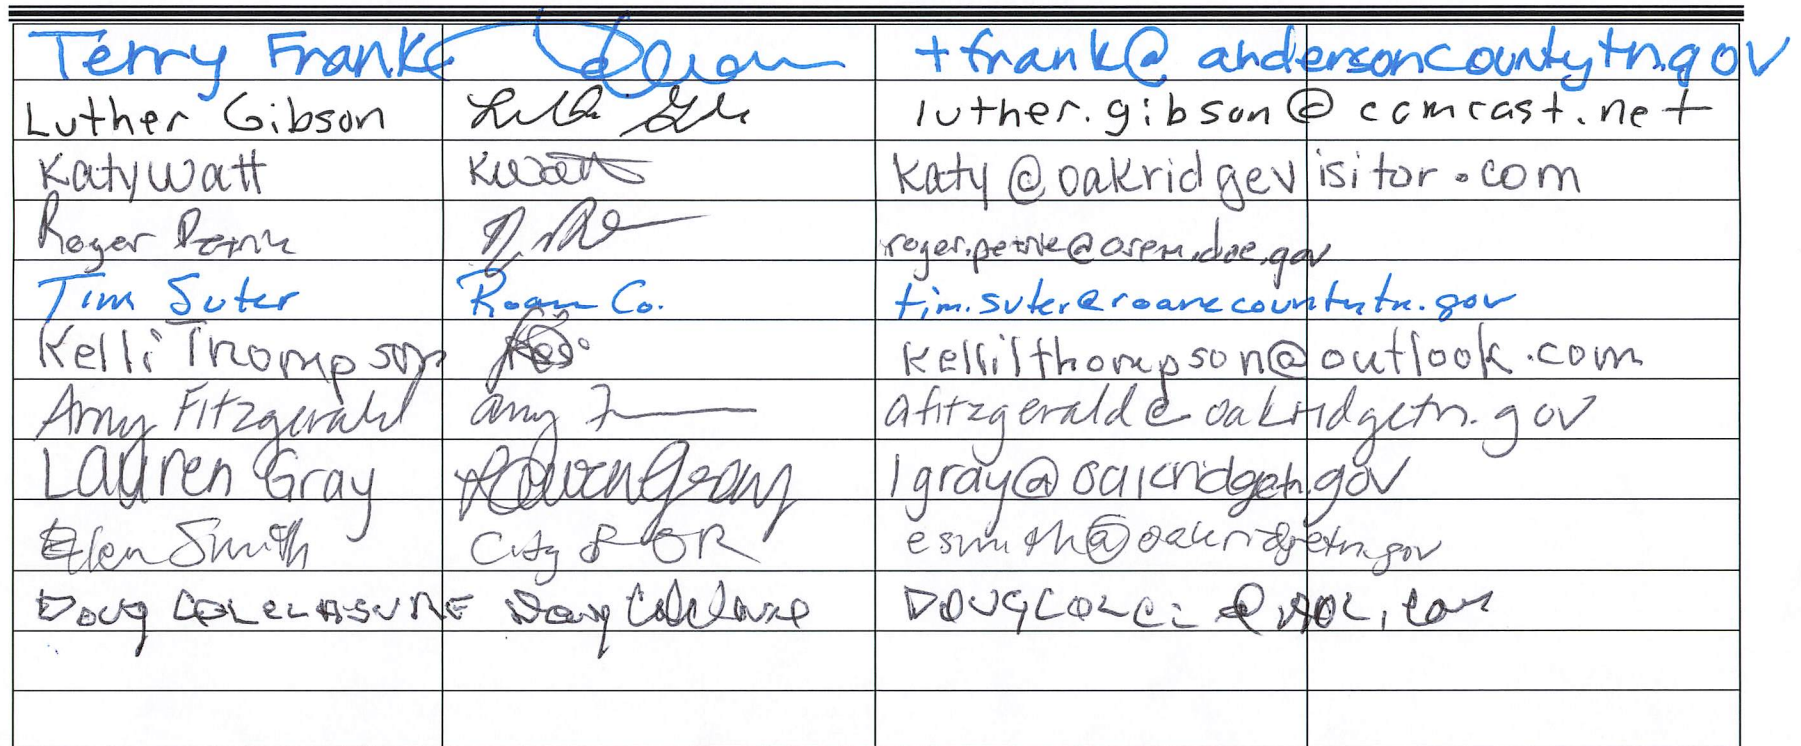 Terry Frank tfrank@andersoncountytn.gov
Luther Gibson luther.gibson@comcast.net
Katy Watt KWatt katy@oakridgevisitor.com
Roger Petrie roger.petrie@orem.doe.gov
Tim Suter Roane Co. tim.suter@roanecountytn.gov
Kelli Thompson kellilthompson@outlook.com
Amy Fitzgerald Amy F afitzgerald@oakridgetn.gov
Lauren Gray Lauren Gray lgray@oakridgetn.gov
Ellen Smith City of OR esmith@oakridgetn.gov
DOUG COLCLASURE Doug Colclasure